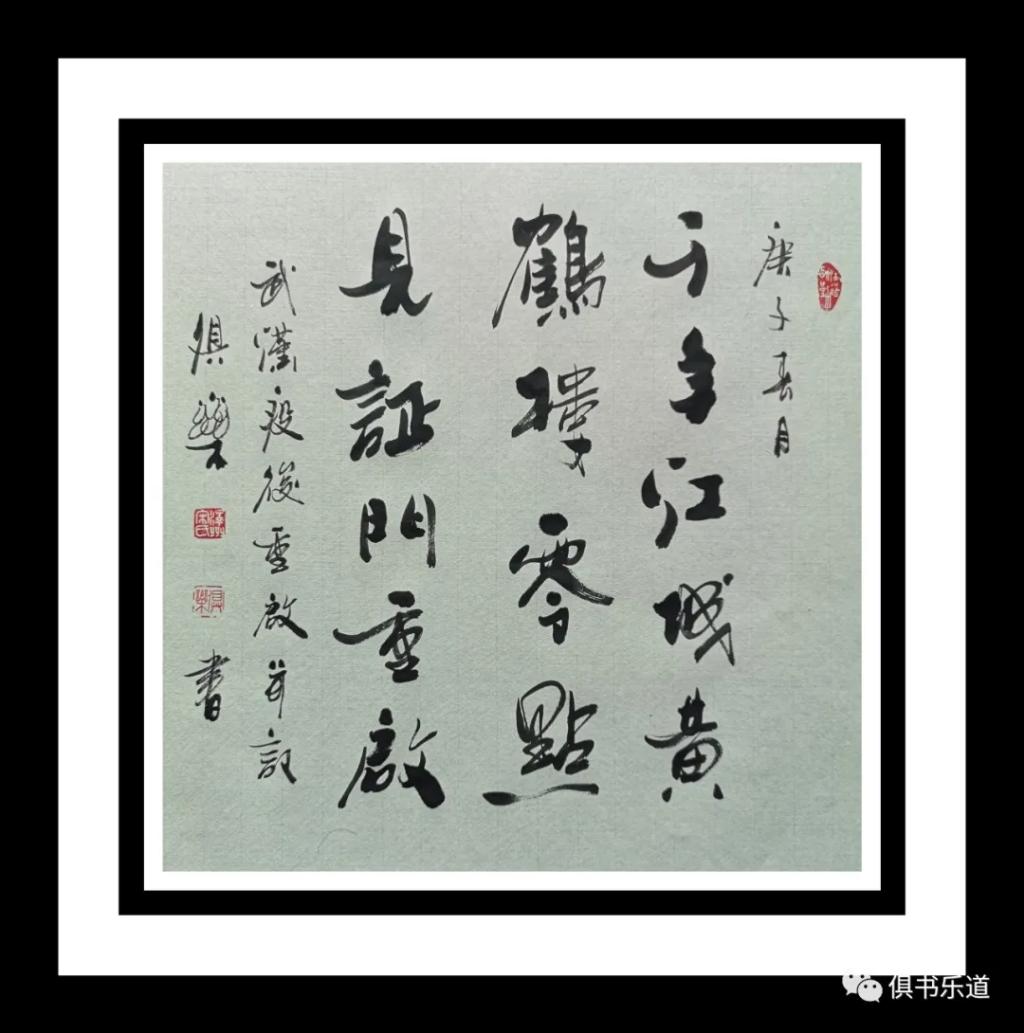 庚子春月
千年江城黄
鶴樓零點
見証門重啟
武漢疫後重啟并記
俱樂
書
俱书乐道